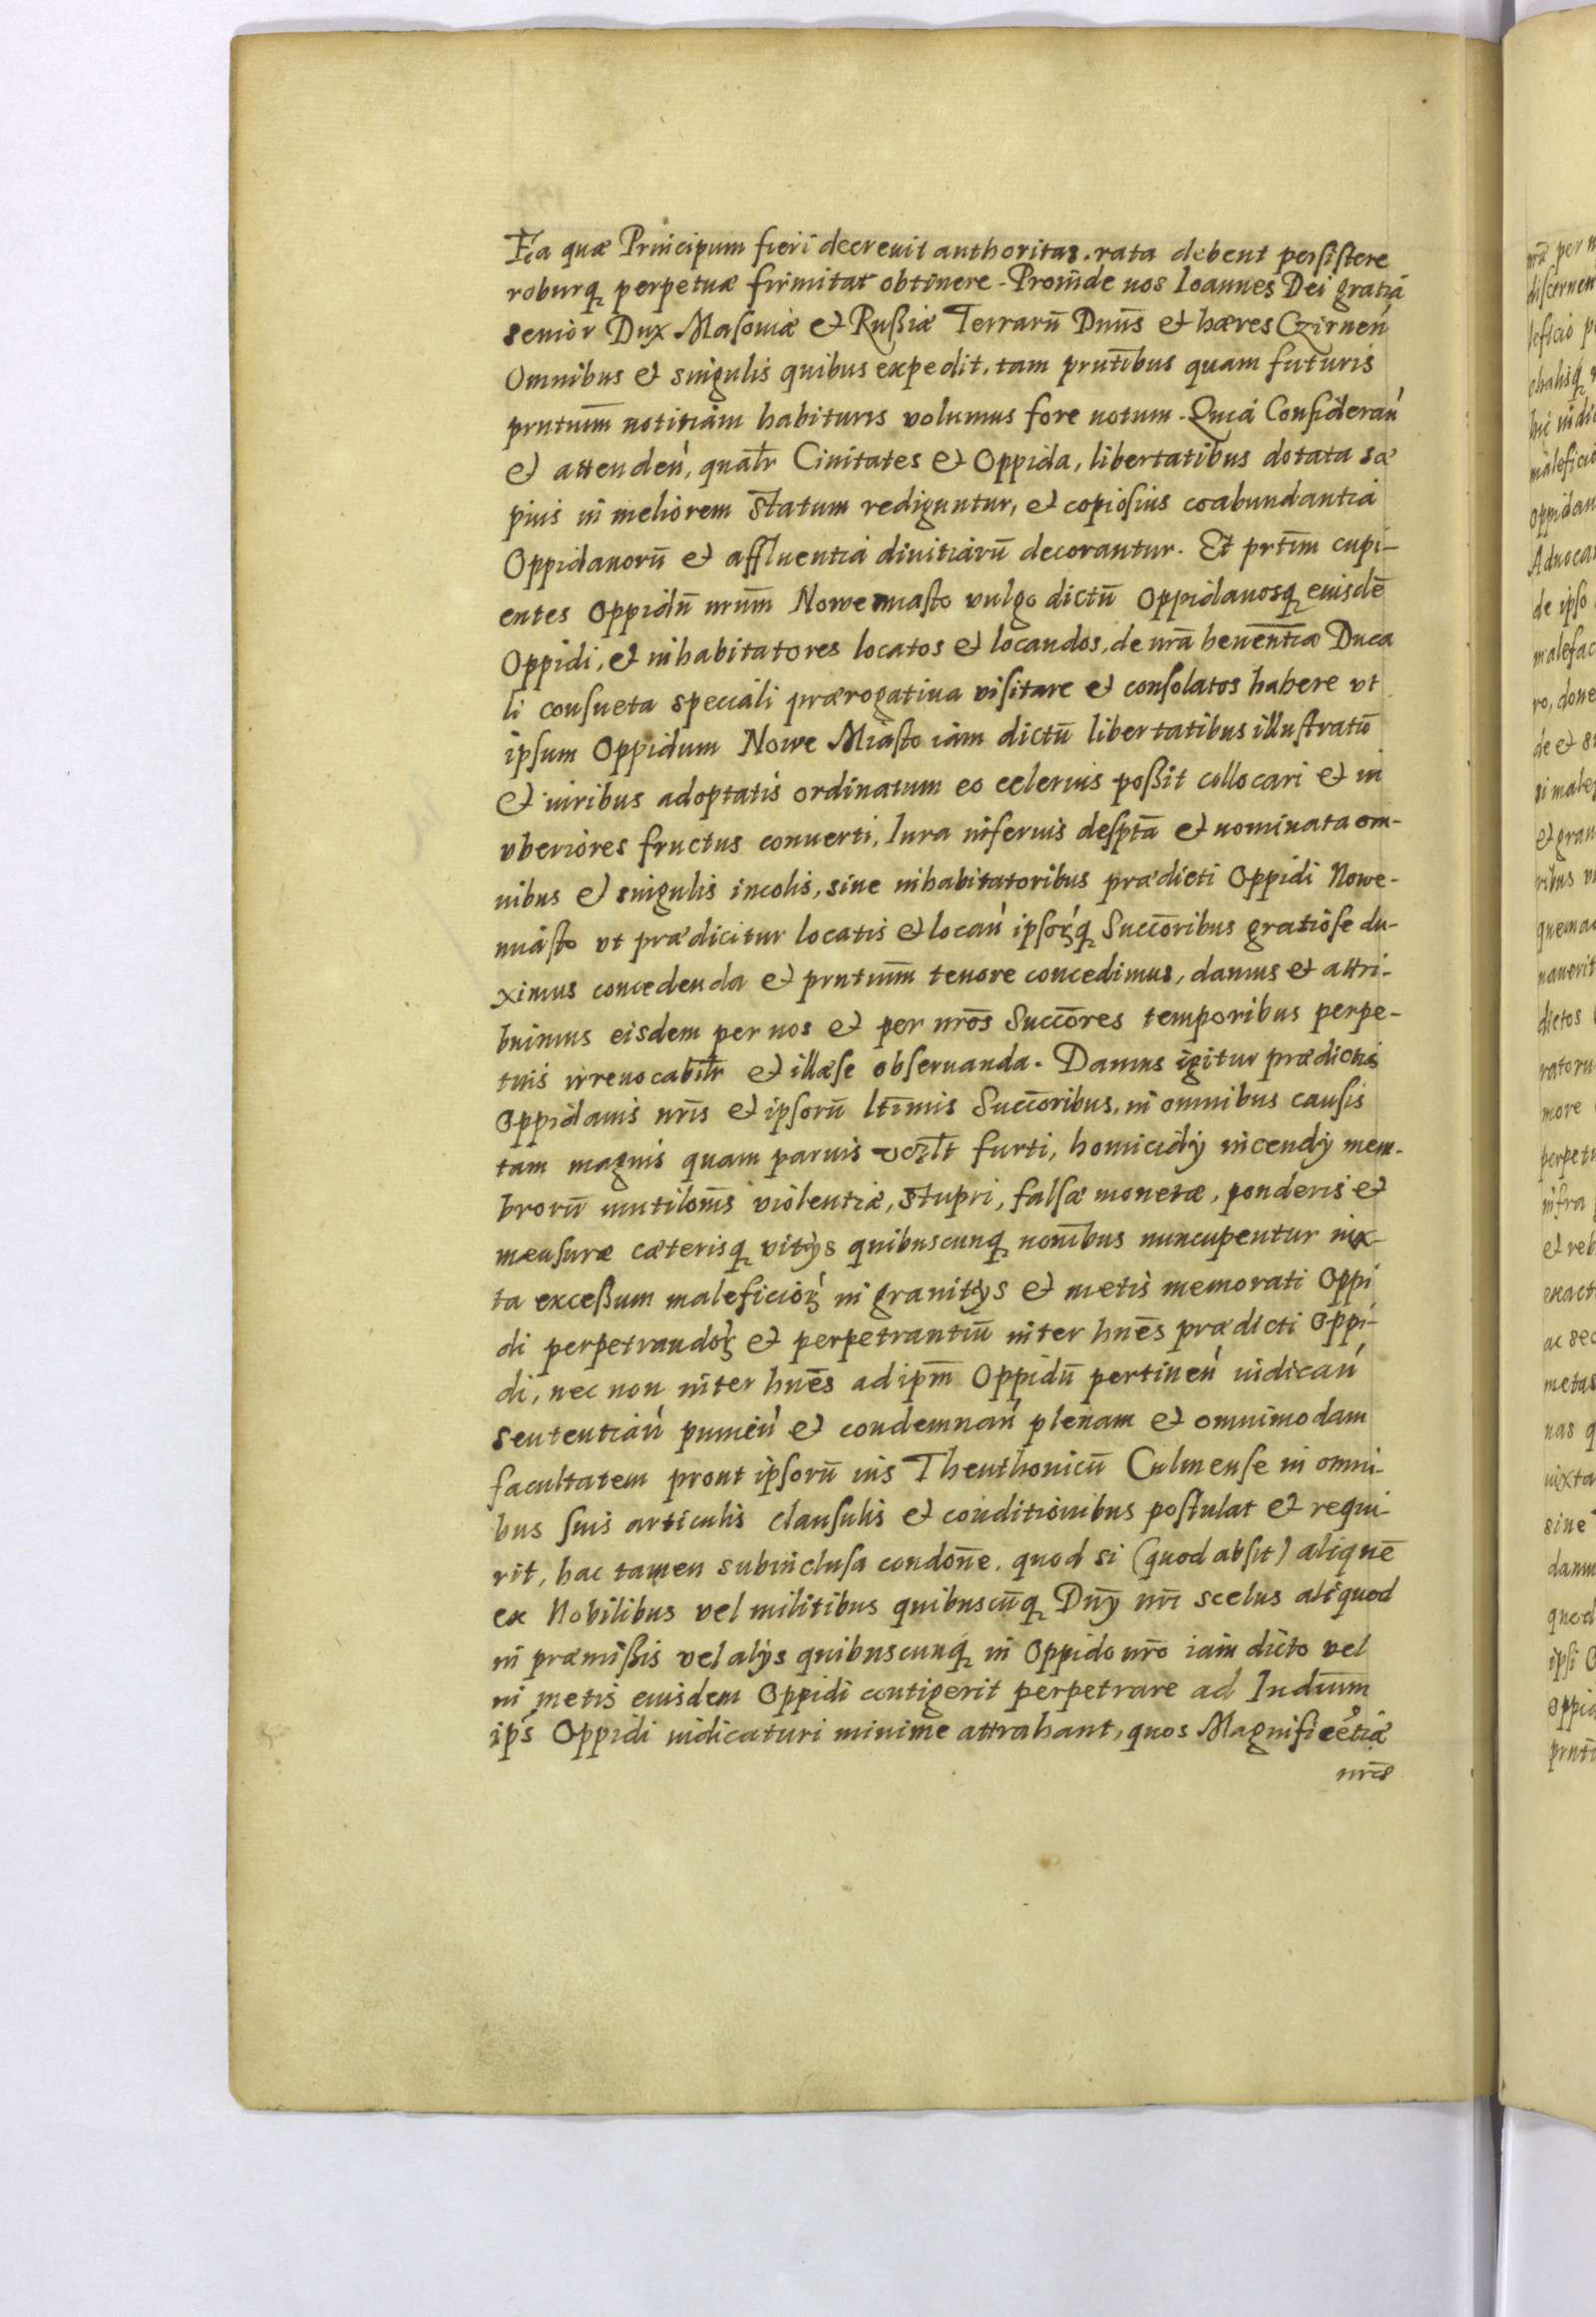 Ea quæ Principum fieri decreuit authoritas. rata debent persistere
roburq perpetuæ firmitat obtinere. Proinde nos Ioannes Dei gratia
senior Dux Masouiæ et Rußiæ Terrarū Dnūs et hæres Czirneń
Omnibus et singulis quibus expedit, tam prntībus quam futuris
prntium̄ notitiam habituris volumus fore notum. Quia Considerań
et attendeń, qualr̄ Ciuitates et Oppida, libertatibus dotata sæ
pius in meliorem statum rediguntur, et copiosius coabundantia
Oppidanorū et affluentia diuitiarū decorantur. Et prtīm cupi-
entes Oppidū nrūm Nowemiasto vulgo dictū Oppidanosq eiusdē
Oppidi, et inhabitatores locatos et locandos, de nrā beuēntia Duca
li consueta speciali prærogatiua visitare et consolatos habere vt
ipsum Oppidum Nowe Miasto iam dictū libertatibus illustratū
et viribus adoptatis ordinatum eo celerius poßit collocari et in
vberiores fructus conuerti, Iura inferius desptā et nominata om-
nibus et singulis incolis, siue inhabitatoribus prædicti Oppidi Nowe-
miasto vt prædicitur locatis et locań ipsorꝝq Succōribus gratiose du-
ximus concedenda et prntium̄ tenore concedimus, damus et attri-
buimus eisdem per nos et per nrōs Succōres temporibus perpe-
tuis irreuocabilr̄ et illæse obseruanda. Damus igitur prædictis
Oppidanis nrīs et ipsorū ltīmis Succōribus, in omnibus causis
tam magnis quam paruis furti, homicidÿ incendÿ mem-
brorū mutilonīs violentiæ, stupri, falsæ monetæ, ponderis et
mensuræ cæterisq vitÿs quibuscunq nomībus nuncupentur iux-
ta exceßum maleficioꝝ in granitÿs et metis memorati Oppi
di perpetrandoꝝ et perpetrantiū inter hnēs prædicti Oppi-
di, nec non inter hnēs ad ipm̄ Oppidū pertineń iudicań
sententiań punień et condemnań plenam et omnimodam
facultatem prout ipsorū ius Theuthonicū Culmense in omni-
bus suis articulis clausulis et conditionibus postulat et requi-
rit, hac tamen subinclusa condōne. quod si (quod absit) aliquē
ex Nobilibus vel militibus quibuscūq Dnÿ nrī scelus aliquod
in præmißis vel alÿs quibuscunq in Oppido nrō iam dicto vel
in metis eiusdem Oppidi contigerit perpetrare ad Iudium̄
ips Oppidi iudicaturi minime attrahant, quos Magnificētiæ
nrēs